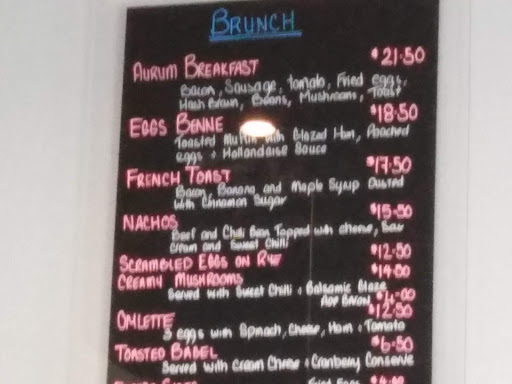 BRUNCH
AURUM BREAKFAST $21.50
Bacon, Sausage, tomato, Fried eggs,
Hash Brown, Beans, Mushrooms, Toast
EGGS BENNE $18.50
Toasted Muffin with Glazed Ham, Poached
eggs + Hollandaise Sauce
FRENCH TOAST $17.50
Bacon, Banana and Maple Syrup Dusted
With Cinnamon Sugar
NACHOS $15.50
Beef and Chilli Bean Topped with cheese, Sour
Cream and Sweet Chilli
SCRAMBLED EGGS ON RYE $12.50
CREAMY MUSHROOMS $14.00
Served with Sweet Chilli + Balsamic Glaze
ADD BACON $4.00
OMLETTE $12.50
3 eggs with Spinach, Cheese, Ham + Tomato
TOASTED BAGEL $6.50
Served with Cream Cheese + Cranberry Conserve